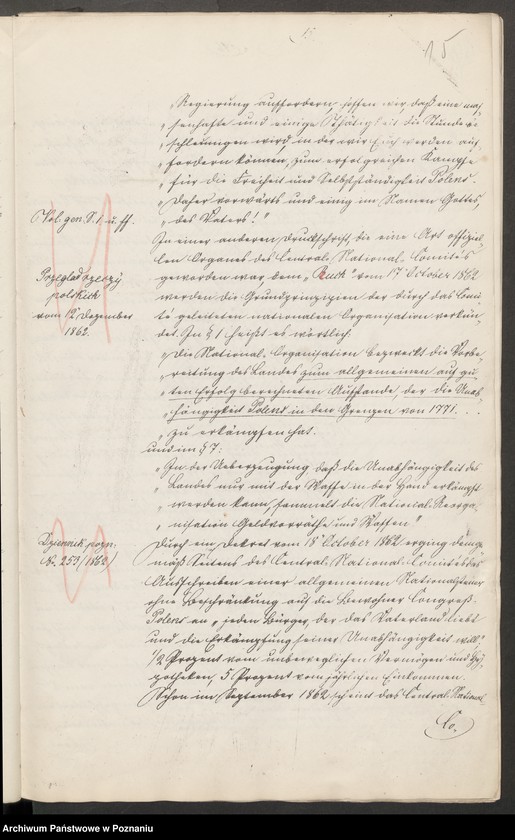 15
15
„Regierung auffordern, hoffen wir, daß eine mas-
„senhafte und einige Thätigkeit die Stunde be-
„schleunigen wird, in der wir Euch werden auf-
„fordern können, zum erfolgreichen Kampfe
„für die Freiheit und Selbstständigkeit Polens.
„Daher vorwärts und einig im Namen Gottes,
„des Vaters!"
Vol. gen. S. 1. u. ff.
In einer anderen Druckschrift, die eine Art offiziel-
len Organes des Central-National-Comités
geworden war, dem „Ruch" vom 17 October 1862
Przegląd rzeczy
polskich
vom 12 Dezember
1862.
werden die Grundprinzipien der durch das Comi-
té geleiteten nationalen Organisation verkün-
det. In § 1 heißt es wörtlich:
„Die National-Organisation bezweckt die Vorbe-
„reitung des Landes zum allgemeinen auf gu-
„ten Erfolg berechneten Aufstande, der die Unab-
„hängigkeit Polens in den Grenzen von 1771. . .
„zu erkämpfen hat.
und im § 7:
„In der Ueberzeugung daß die Unabhängigkeit des
„Landes nur mit der Waffe in der Hand erkämpft
„werden kann, sammelt die National-Reorga-
„nisation Geldvorräthe und Waffen"
Dziennik pozn.
N. 253/1862)
Durch ein Dekret vom 18 October 1862 erging demge-
mäß Seitens des Central-National-Comités das
Ausschreiben einer allgemeinen Nationalsteuer
ohne Beschränkung auf die Bewohner Congreß-
Polens an „jeden Bürger, der das Vaterland liebt
und die Erkämpfung seiner Unabhängigkeit will,"
1/2 Prozent vom unbeweglichen Vermögen und Hy-
potheken, 5 Prozent vom jährlichen Einkommen.
Schon im September 1862 scheint das Central-National-
Co,
Archiwum Państwowe w Poznaniu